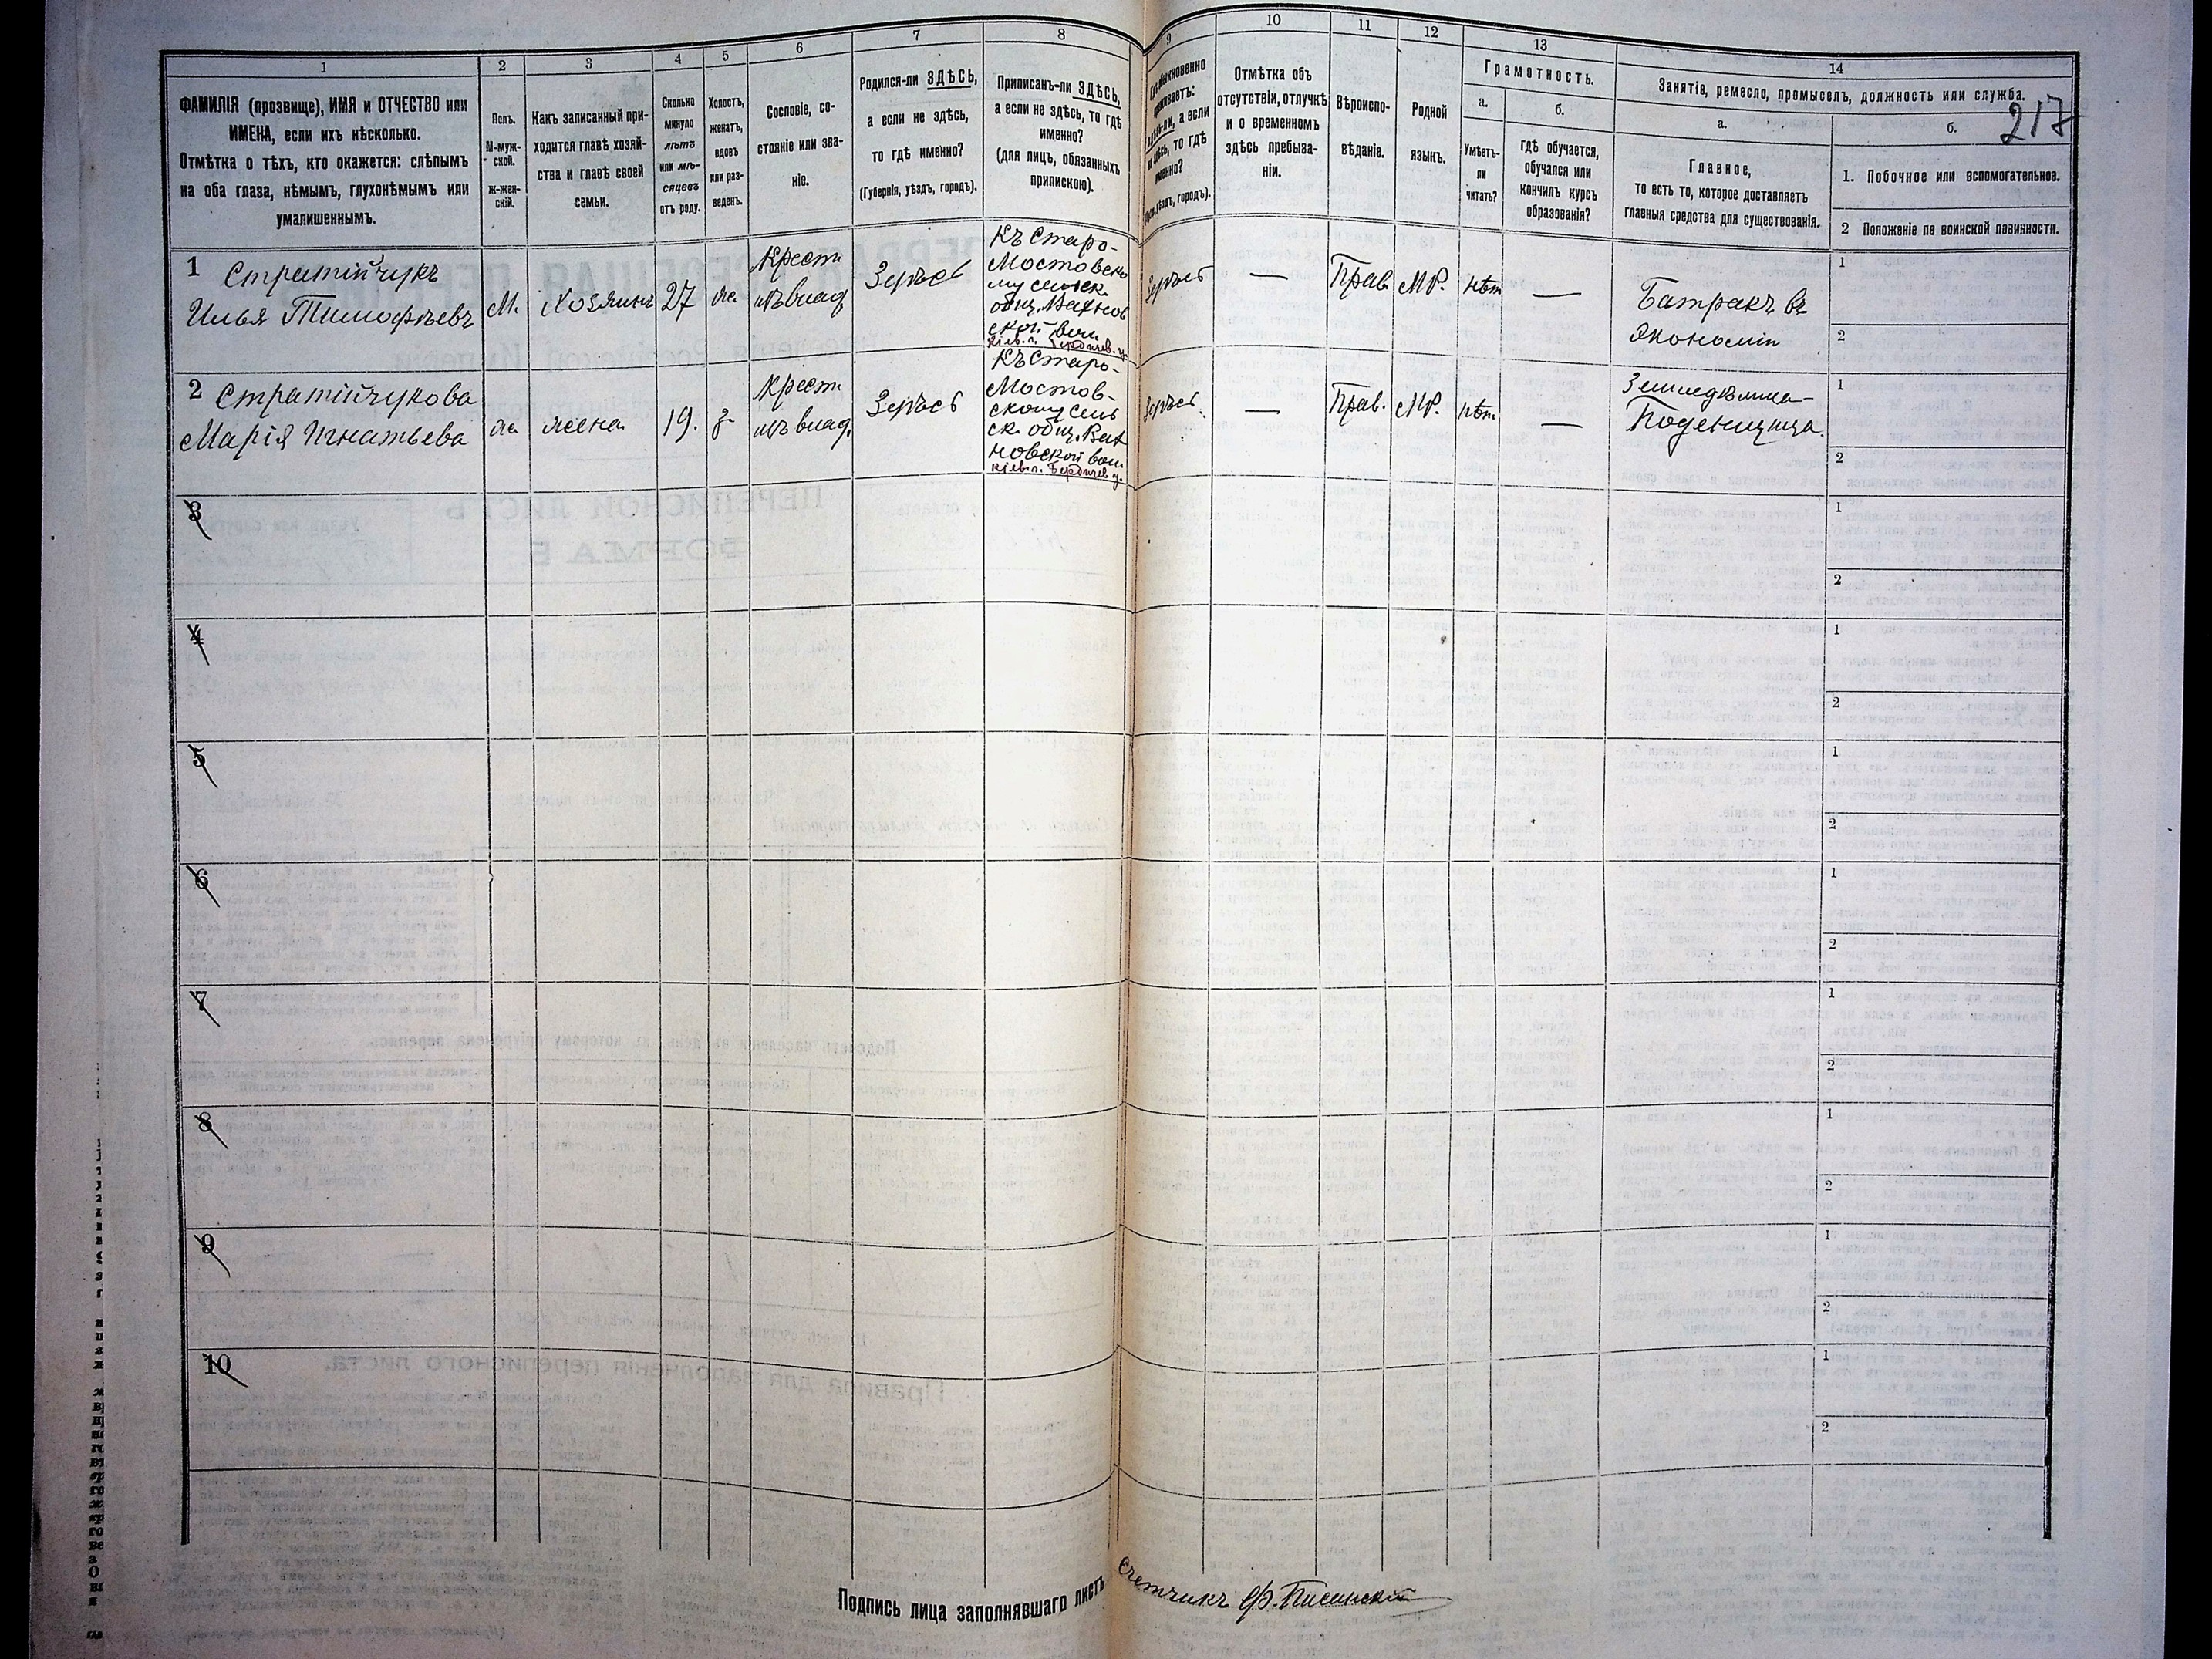 217
1
2
3
4
5
6
7
8
9
10
11
12
13
14
ФАМИЛІЯ (прозвище), ИМЯ и ОТЧЕСТВО или
ИМЕНА, если ихъ нѣсколько.
Отмѣтка о тѣхъ, кто окажется: слѣпымъ
на оба глаза, нѣмымъ, глухонѣмымъ или
умалишеннымъ.
Полъ.
М-муж-
ской.
Ж-жен-
скій.
Какъ записанный при-
ходится главѣ хозяй-
ства и главѣ своей
семьи.
Сколько
минуло
лѣтъ
или мѣ-
сяцевъ
отъ роду.
Холостъ,
женатъ,
вдовъ
или раз-
веденъ.
Сословіе, со-
стояніе или зва-
ніе.
Родился-ли ЗДѢСЬ,
а если не здѣсь,
то гдѣ именно?
(Губернія, уѣздъ, городъ).
Приписанъ-ли ЗДѢСЬ,
а если не здѣсь, то гдѣ
именно?
(для лицъ, обязанныхъ
припискою).
а если
то гдѣ
именно?
уѣздъ, городъ).
Отмѣтка объ
отсутствіи, отлучкѣ
и о временномъ
здѣсь пребыва-
ніи.
Вѣроиспо-
вѣданіе.
Родной
языкъ.
Грамотность.
а.
Умѣетъ-
ли
читать?
б.
гдѣ обучается,
обучался или
кончилъ курсъ
образованія?
Занятіе, ремесло, промыселъ, должность или служба.
а.
Главное,
то есть то, которое доставляетъ
главныя средства для существованія.
б.
1. Побочное или вспомогательное.
2 Положеніе по воинской повинности.
1 Стратійчукъ
Илья Тимофѣевъ
М.
Хозяинъ
27
Крест.
изъ влад.
Здѣсь
Къ Старо-
Мостовско
му сельск.
общ. Вахнов
ской вол.
Кіев. г. Бердичев. у.
Здѣсь
—
Прав.
МР.
нѣт
—
Батракъ въ
Экономіи
1
2
2 Стратійчукова
Марія Игнатьева
жена
19.
з
Крест.
изъ влад.
Здѣсь
Къ Старо-
Мостов-
скому сель
ск. общ. Вах
новской вол.
Кіев. г. Бердичев. у.
Здѣсь.
—
Прав.
МР.
нѣт
—
Земледѣлица-
Поденщица.
1
2
3
1
2
4
1
2
5
1
2
6
1
2
7
1
2
8
1
2
9
1
2
10
1
2
Подпись лица заполнявшаго листъ
Счетчикъ